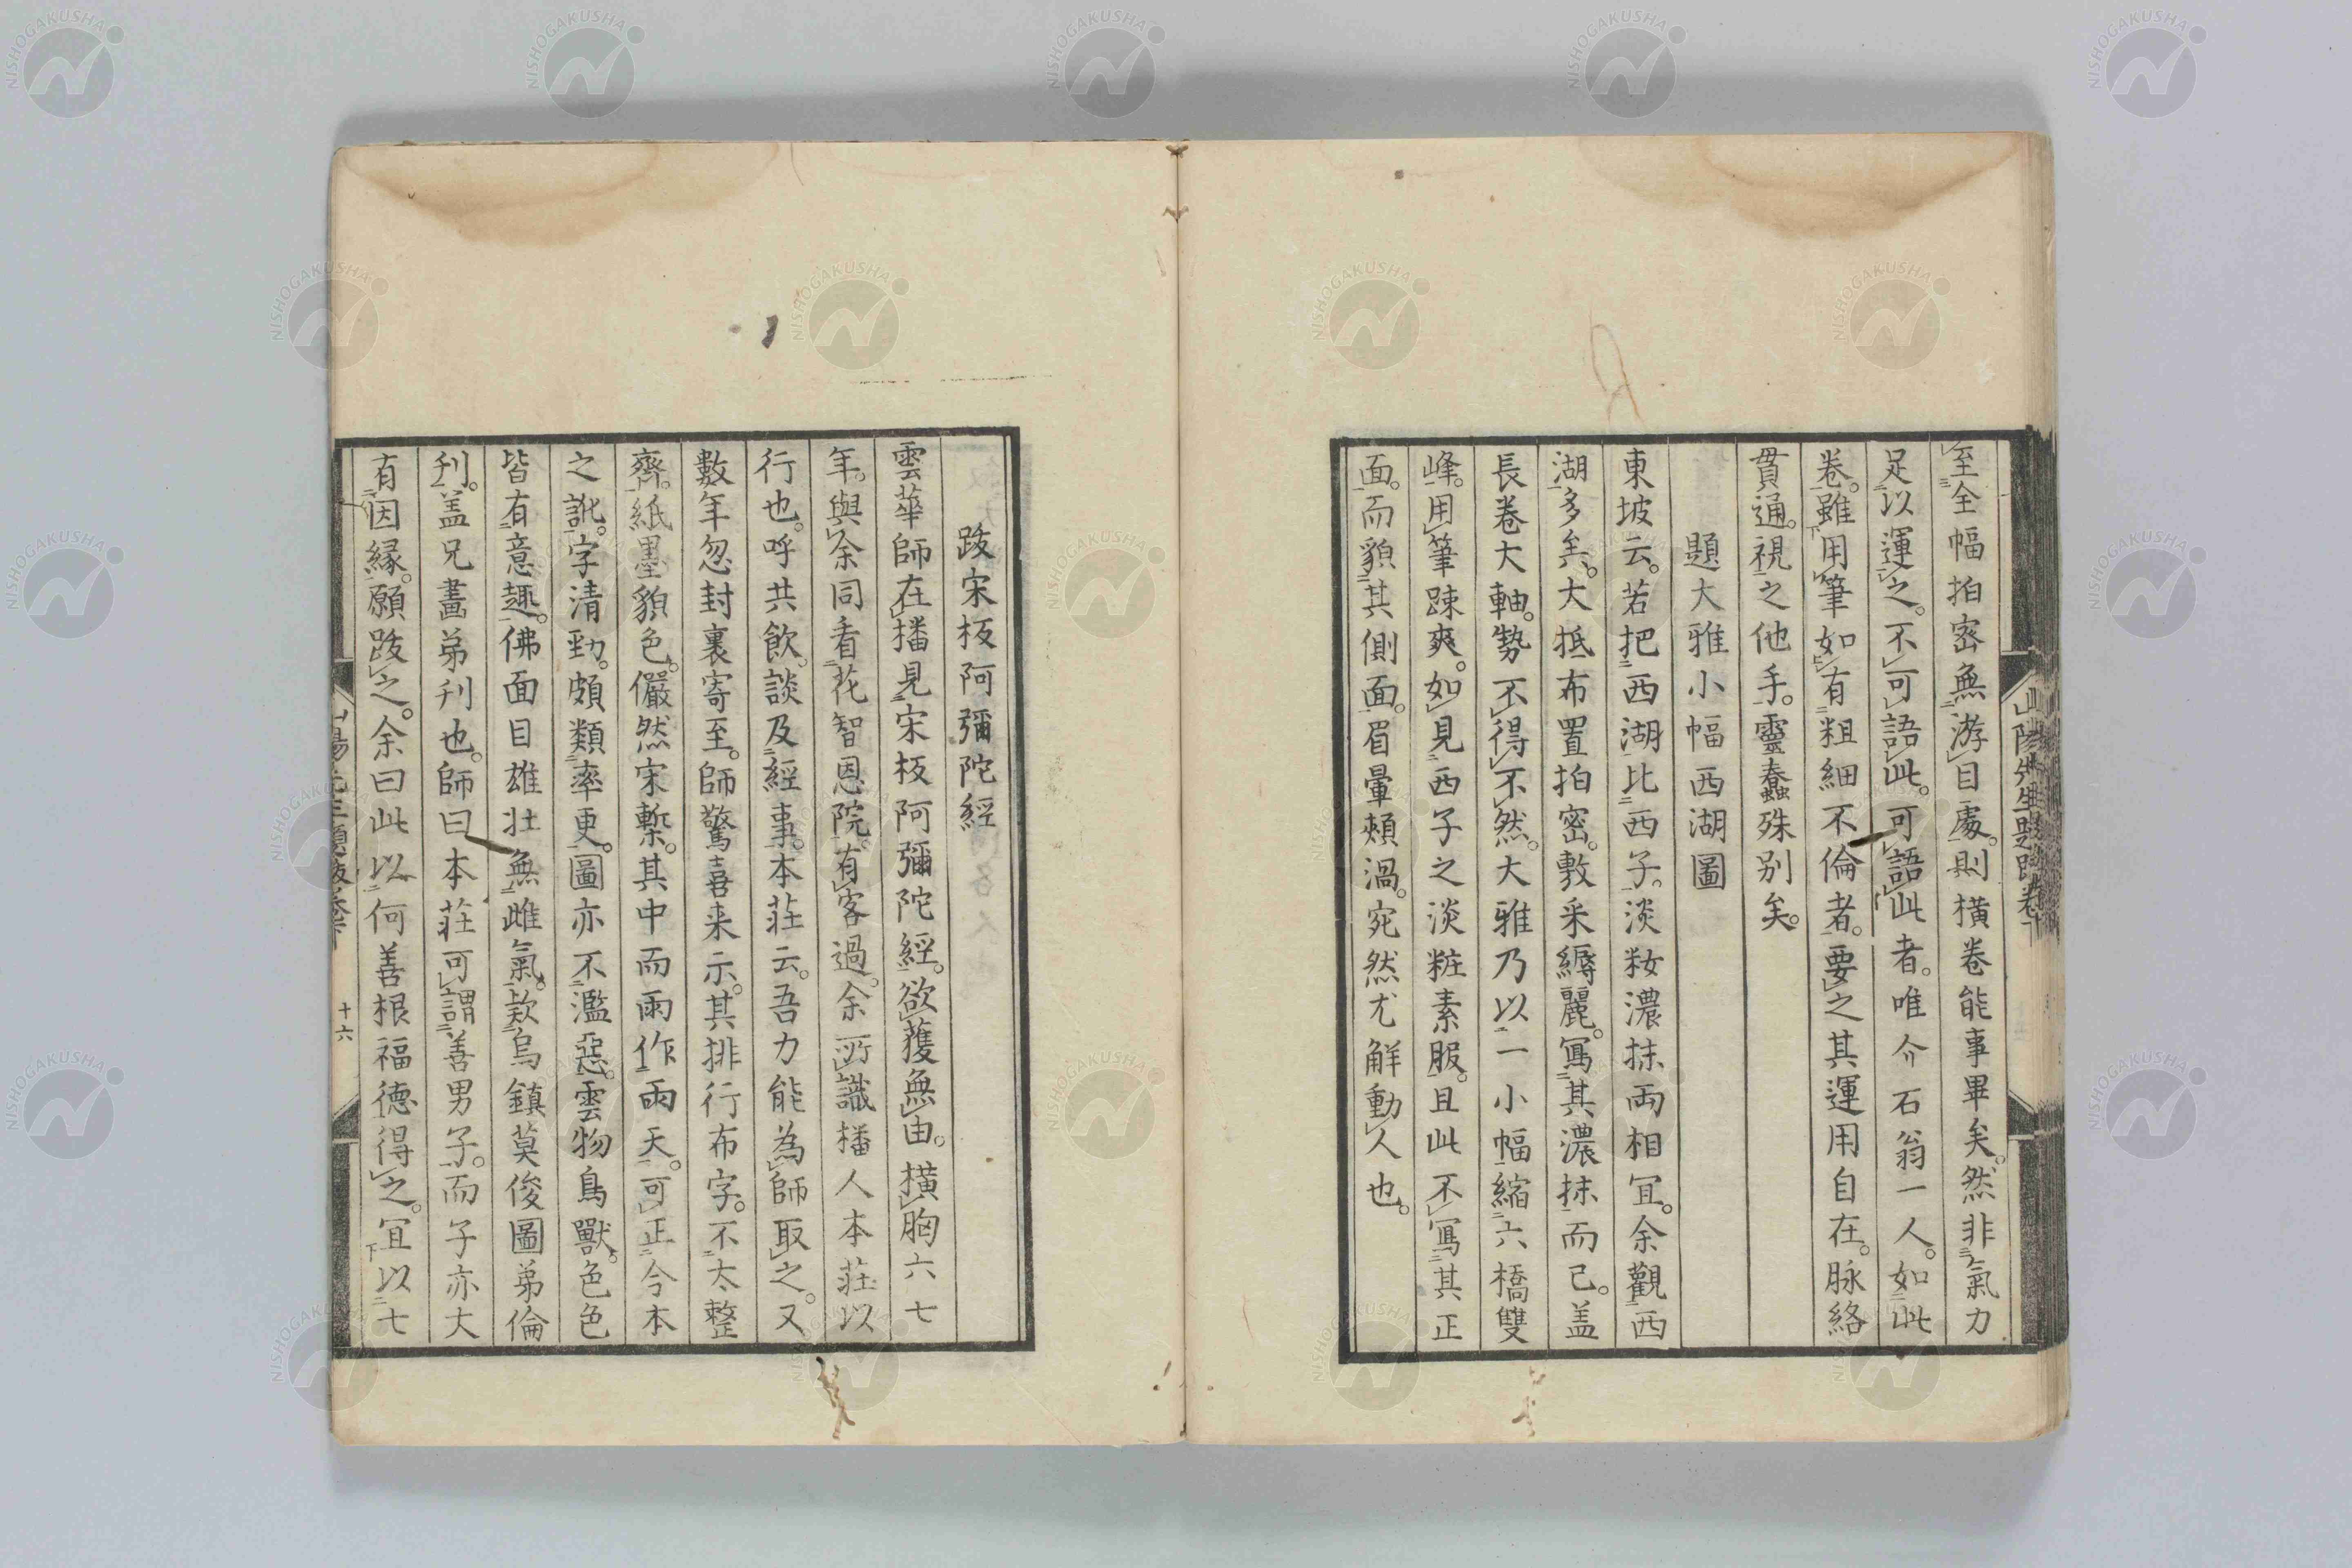 至全幅拍密無游目處。則横卷能事畢矣。然非氣力
足以運之。不可語此。可語此者。唯介石翁一人。如此
卷。雖用筆如有粗細不倫者。要之其運用自在。脉絡
貫通。視之他手。靈蠢殊別矣。
題大雅小幅西湖圖
東坡云。若把西湖比西子。淡粧濃抹両相冝。余觀西
湖多矣。大抵布置拍密。敷采縟麗。寫其濃抹而已。盖
長卷大軸。勢不得不然。大雅乃以一小幅縮六橋雙
峰。用筆踈爽。如見西子之淡粧素服。且此不寫其正
面。而貌其側面。眉暈頰渦。宛然尤解動人也。
跋宋板阿彌陀經
雲華師在播見宋板阿彌陀經。欲獲無由。横胸六七
年。與余同看花智恩院。有客過。余所識播人本莊以
行也。呼共飲。談及經事。本莊云。吾力能為師取之。又
數年忽封裹寄至。師驚喜来示。其排行布字。不太整
齊。紙墨貌色。儼然宋槧。其中而雨作雨天。可正今本
之訛。字清勁。頗類率更。圖亦不濫惡。雲物鳥獸。色色
皆有意趣。佛面目雄壮無雌氣。欵烏鎮莫俊圖弟倫
刋。盖兄畵弟刋也。師曰本莊可謂善男子。而子亦大
有因縁。願跋之。余曰此以何善根福德得之。冝以七
山陽先生題跋卷下
十六